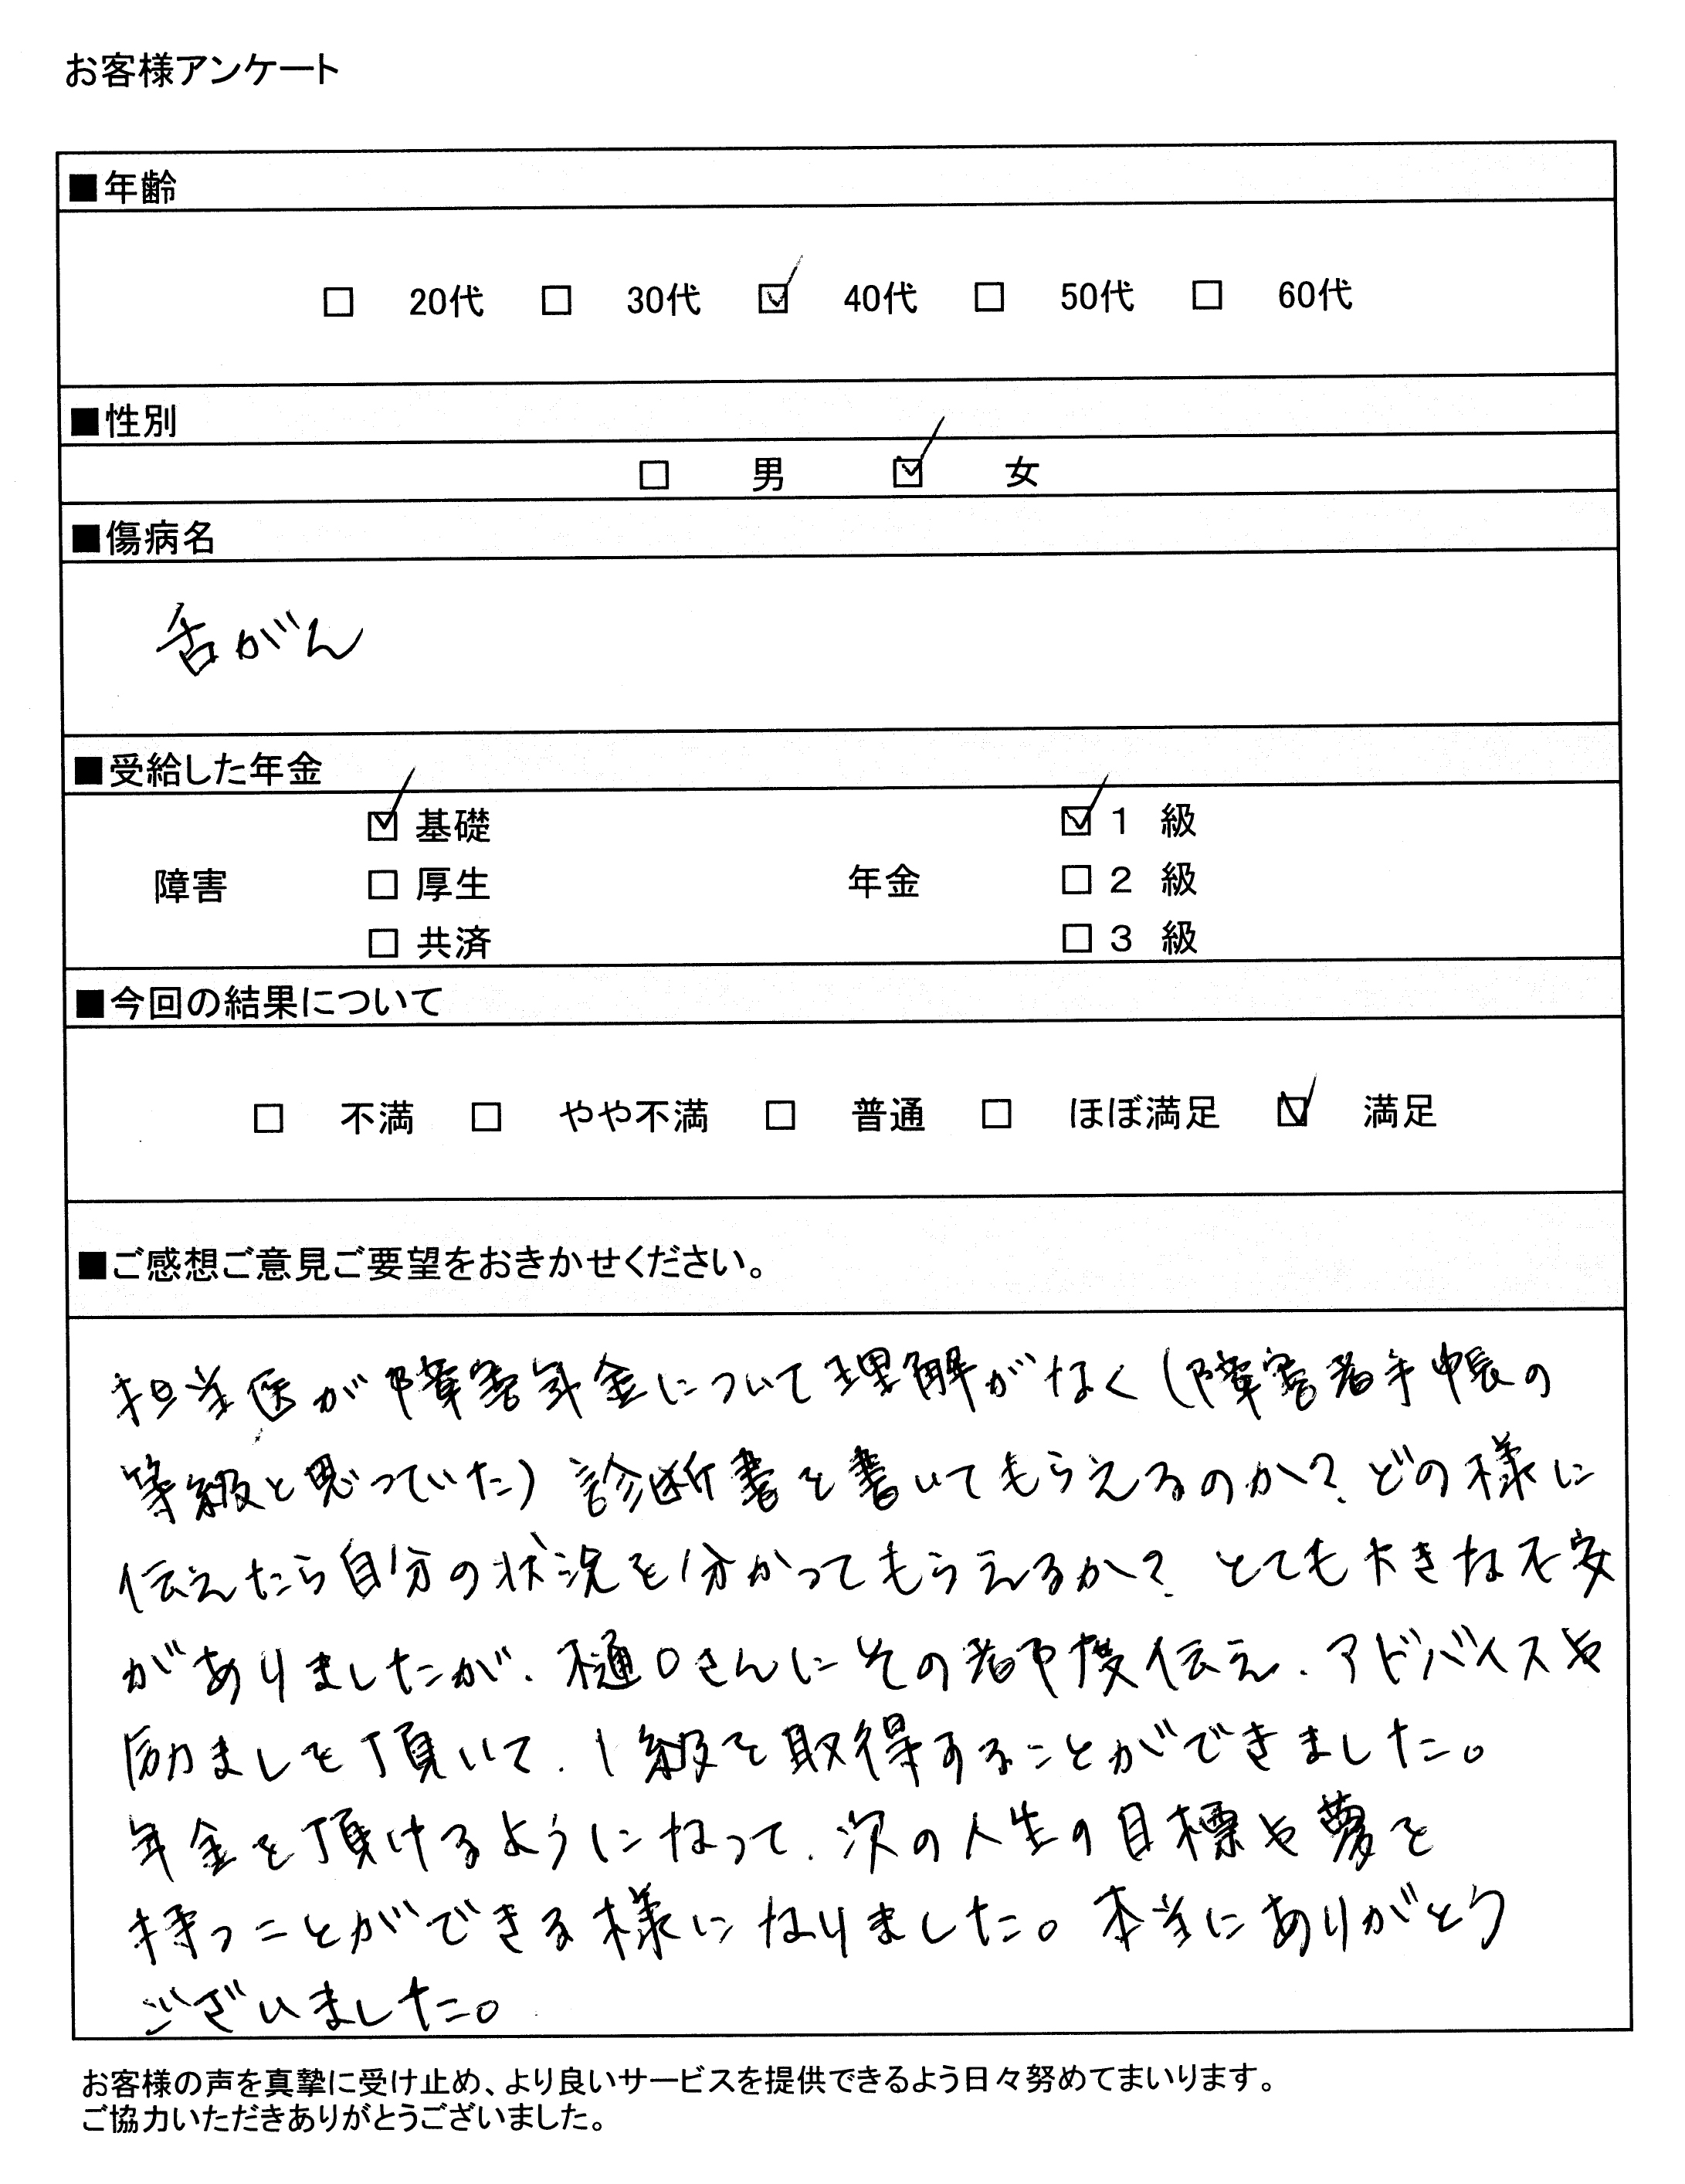 お客様アンケート
■年齢
□ 20代 □ 30代 ☑ 40代 □ 50代 □ 60代
■性別
□ 男 ☑ 女
■傷病名
舌がん
■受給した年金
☑ 基礎 ☑ 1 級
障害 □ 厚生 年金 □ 2 級
□ 共済 □ 3 級
■今回の結果について
□ 不満 □ やや不満 □ 普通 □ ほぼ満足 ☑ 満足
■ご感想ご意見ご要望をおきかせください。
担当医が障害年金について理解がなく(障害者手帳の
等級と思っていた)診断書を書いてもらえるのか?どの様に
伝えたら自分の状況を分かってもらえるか?とても大きな不安
がありましたが、樋口さんにその都度伝え、アドバイスや
励ましを頂いて、1級を取得することができました。
年金を頂けるようになって、次の人生の目標や夢を
持つことができる様になりました。本当にありがとう
ございました。
お客様の声を真摯に受け止め、より良いサービスを提供できるよう日々努めてまいります。
ご協力いただきありがとうございました。